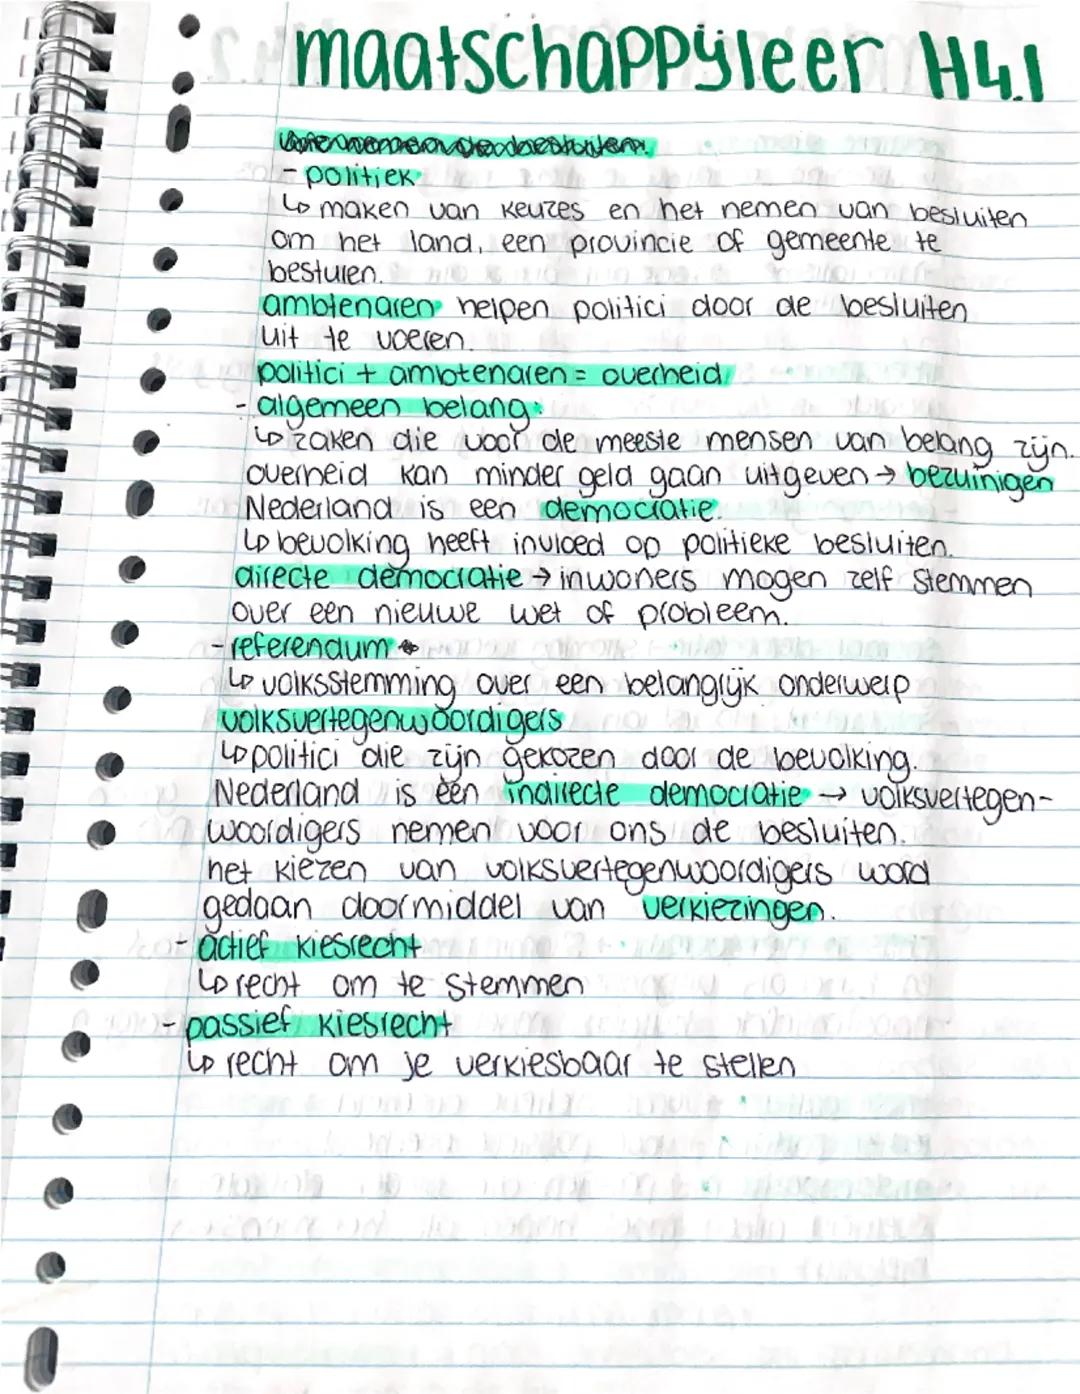 maatschappijleer H4.1
- politiek
↳ maken van keuzes en het nemen van besluiten
om het land, een provincie of gemeente te
besturen.
ambtenaren helpen politici door de besluiten
uit te voeren.
politici + ambtenaren = overheid
- algemeen belang:
↳ zaken die voor de meeste mensen van belang zijn.
overheid kan minder geld gaan uitgeven → bezuinigen
Nederland is een democratie.
↳ bevolking heeft invloed op politieke besluiten.
directe democratie → inwoners mogen zelf stemmen
over een nieuwe wet of probleem.
- referendum
↳ volksstemming over een belangrijk onderwerp
volksvertegenwoordigers
↳ politici die zijn gekozen door de bevolking.
Nederland is een indirecte democratie → volksvertegen-
woordigers nemen voor ons de besluiten.
het kiezen van volksvertegenwoordigers word
gedaan doormiddel van verkiezingen.
- actief kiesrecht
↳ recht om te stemmen
- passief kiesrecht
↳ recht om je verkiesbaar te stellen